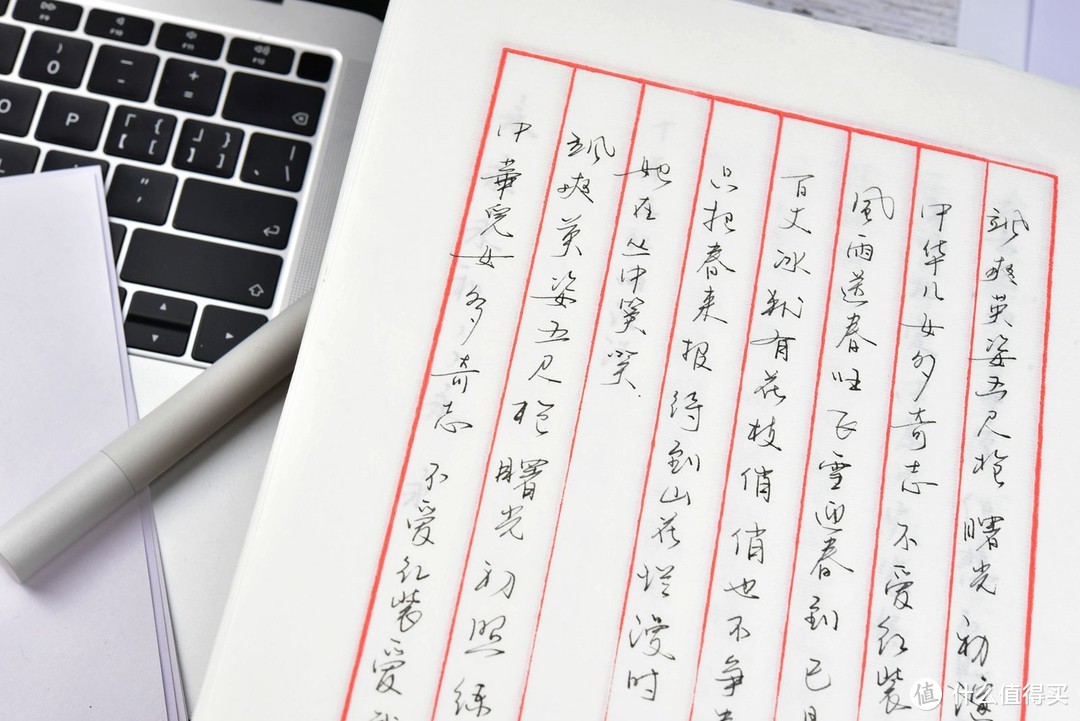 飒爽英姿五尺枪 曙光初
中华儿女多奇志 不爱红装
風雨送春归飞雪迎春到已
百丈冰犹有花枝俏俏也不争
只把春来报 待到山花烂漫时
她在丛中笑笑.
颯爽英姿五尺枪 曙光初照练
中華兒女多奇志 不爱红装爱
F10
F11
F12
)
0
-
+
=
O
P
「 {
『 [
」 }
』 ]
值 什么值得买